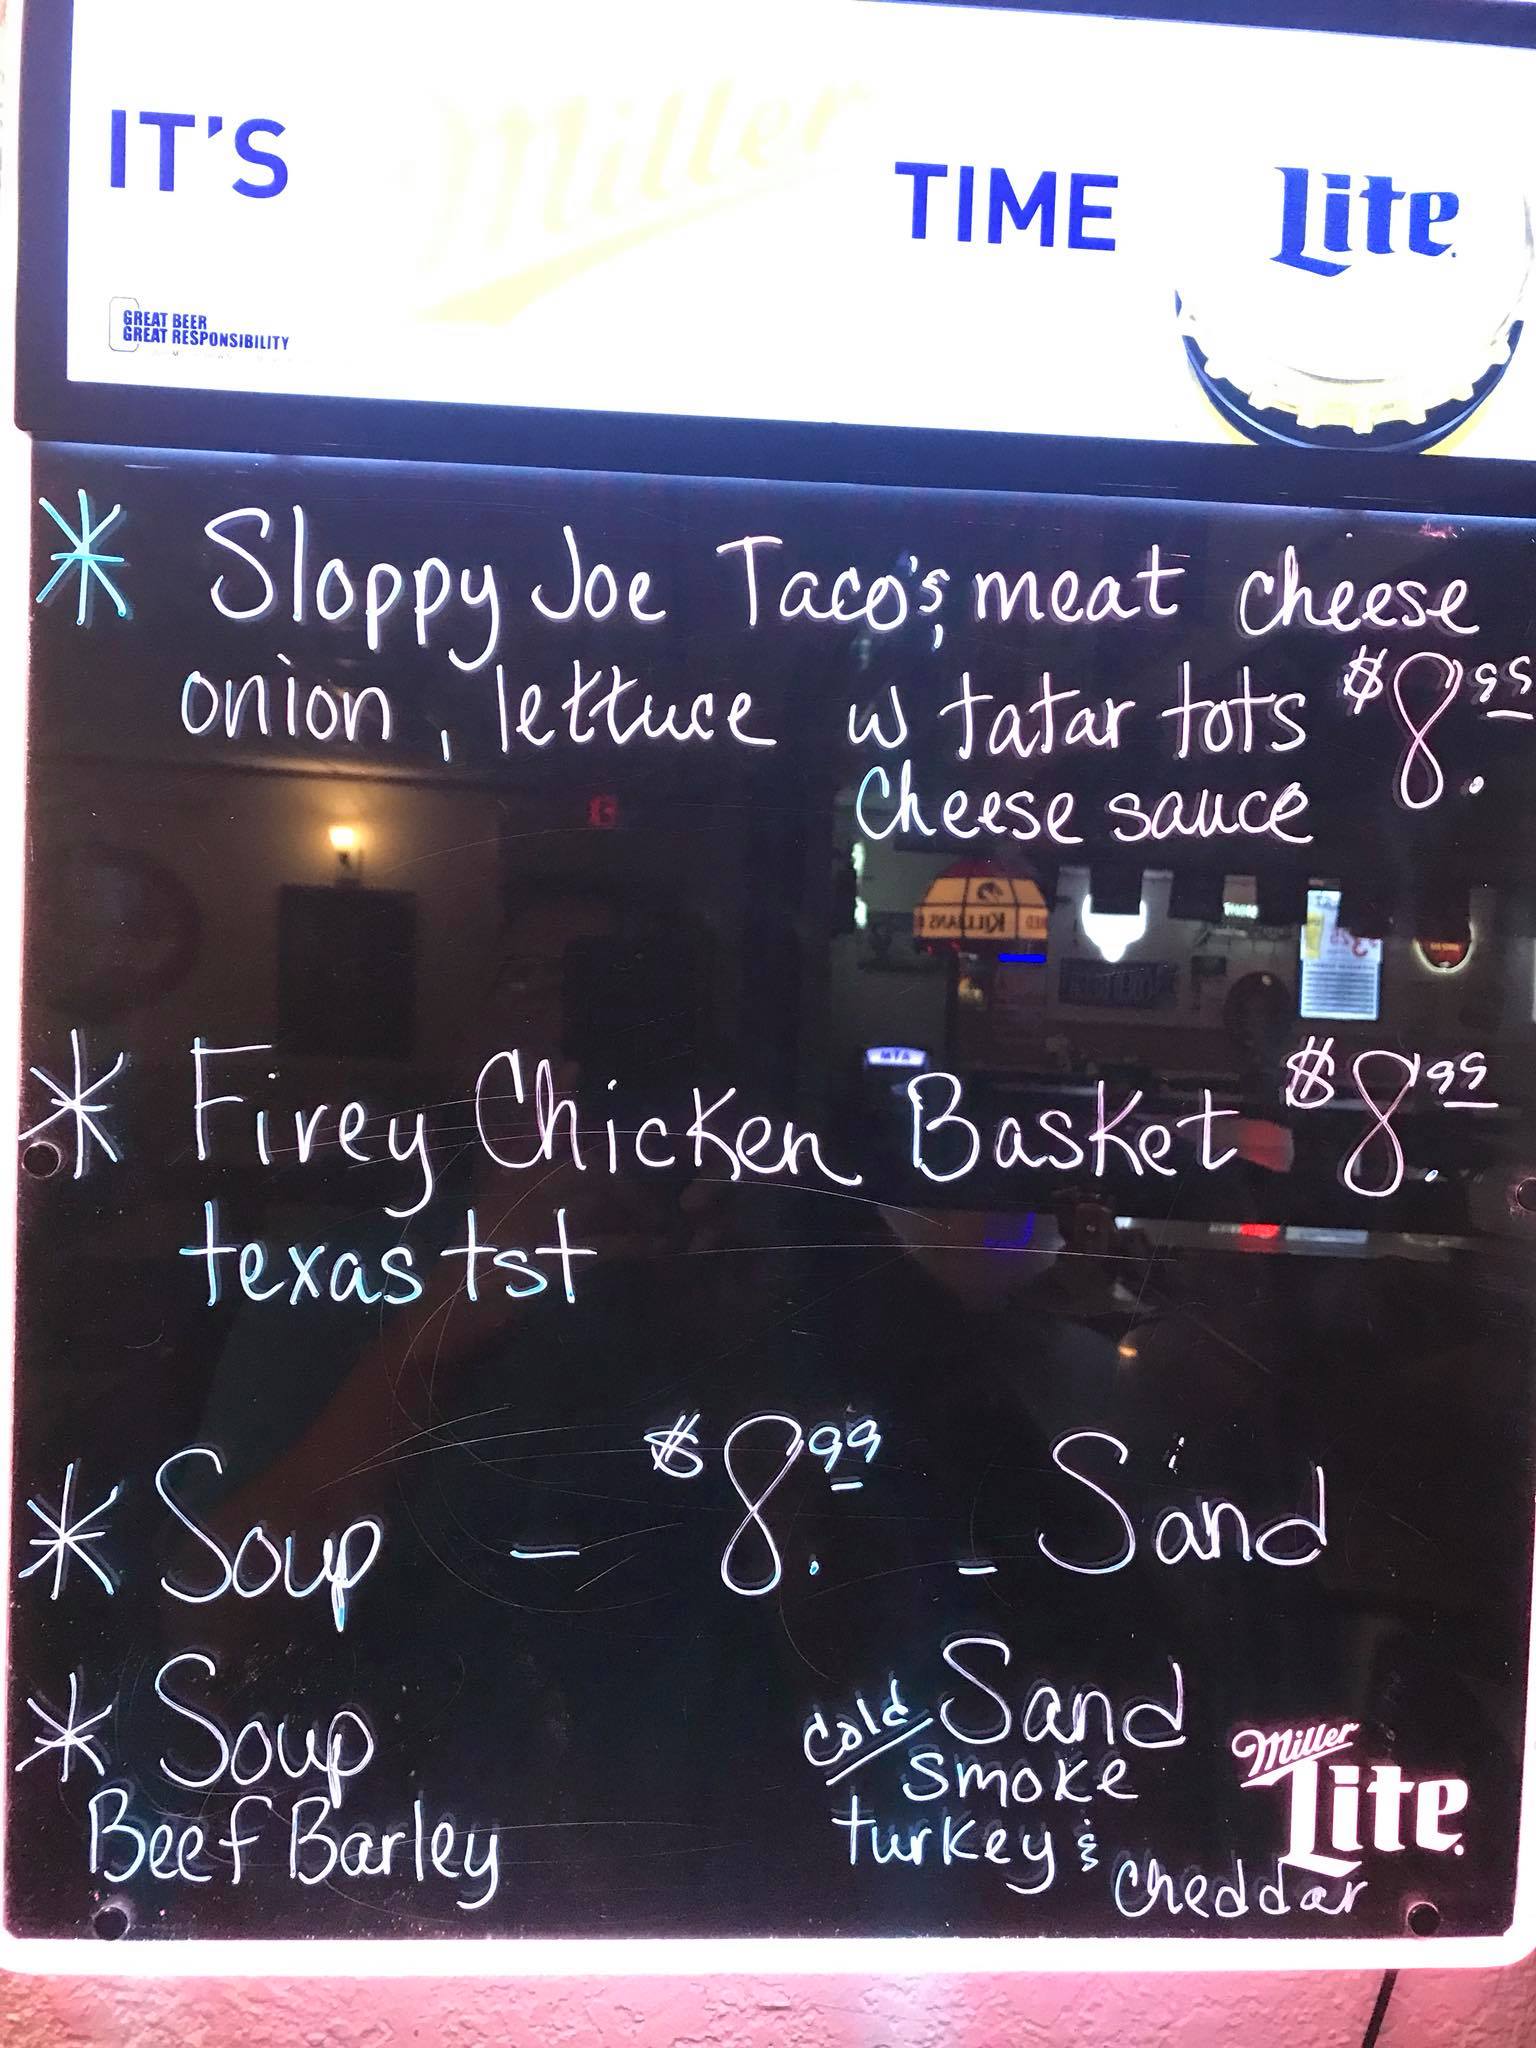 IT'S Miller TIME Lite
GREAT BEER
GREAT RESPONSIBILITY
* Sloppy Joe Taco's, meat cheese
onion, lettuce w tatar tots $8.99
Cheese sauce
* Firey Chicken Basket $8.99
texas tst
* Soup - $8.99 - Sand
* Soup
Beef Barley
cold Sand
smoke
turkey &
cheddar
Miller
Lite
KILLIANS
RED
ATM